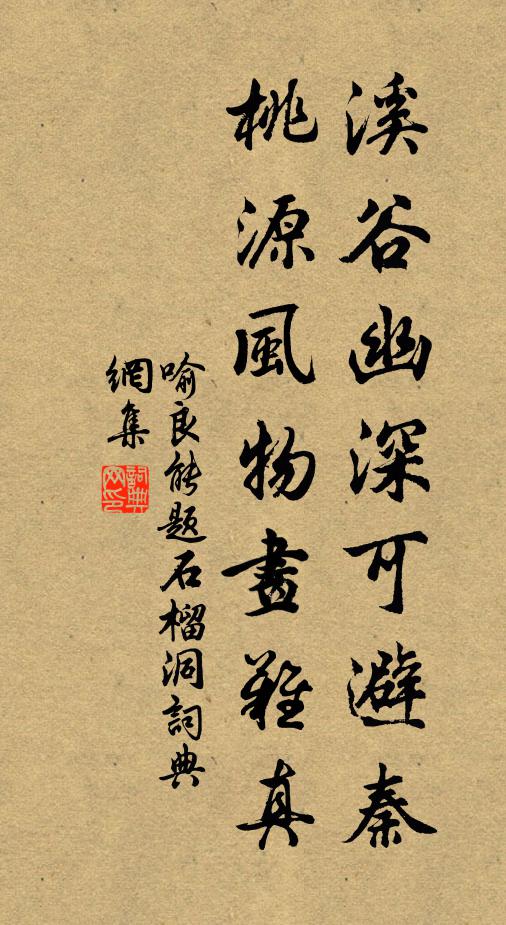 溪谷幽深可避秦
桃源風物畫難真
喻良能题石榴洞詞典
網集
詞典
网印